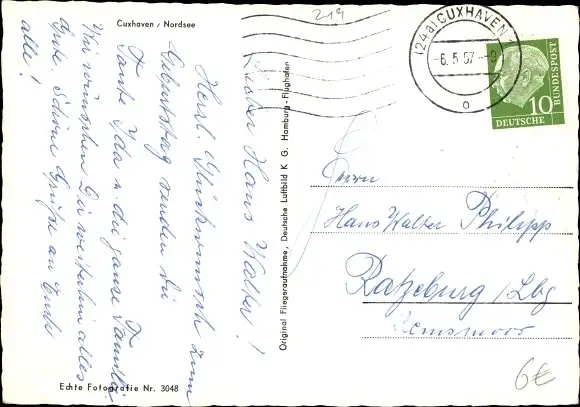 219
Cuxhaven / Nordsee
Lieber Hans Walter!
Herzl. Glückwunsch zum
Geburtstag senden Dir
Tante Ida u. die ganze Familie
Wir wünschen Dir weiterhin alles
Gute. Schöne Grüße an Euch
alle!
Echte Fotografie Nr. 3048
Original Fliegeraufnahme, Deutsche Luftbild K G. Hamburg-Flughafen
(24a) CUXHAVEN
-6.5.57.-9
o
10
DEUTSCHE
BUNDESPOST
Herrn
Hans Walter Philipp
Ratzeburg / Lbg
6€